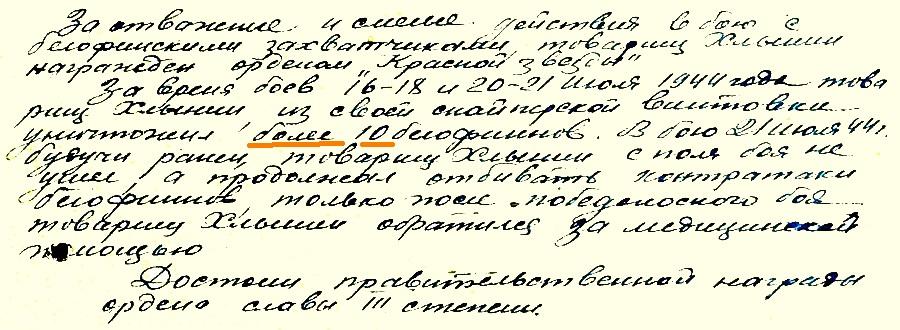 За отважные и смелые действия в бою с
белофинскими захватчиками, товарищ Хлынин
награжден орденом "Красной звезды"
За время боев 16-18 и 20-21 июля 1944 года това
рищ Хлынин из своей снайперской винтовки
уничтожил более 10 белофиннов. В бою 21 июля 44 г.
будучи ранен, товарищ Хлынин с поля боя не
ушел, а продолжал отбивать контратаки
белофиннов, только посл победоносного боя
товарищ Хлынин обратился за медицинской
помощью
Достоин правительственной награды
ордена славы III степени.